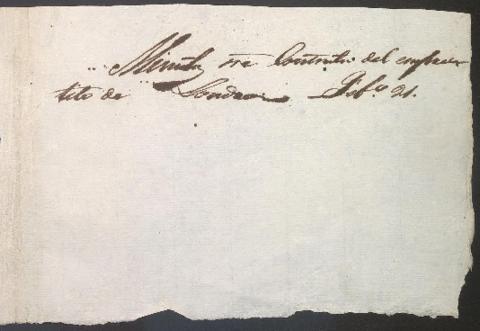 Minuta sre Contrata del empres
tito de Londres Feb.º 21.